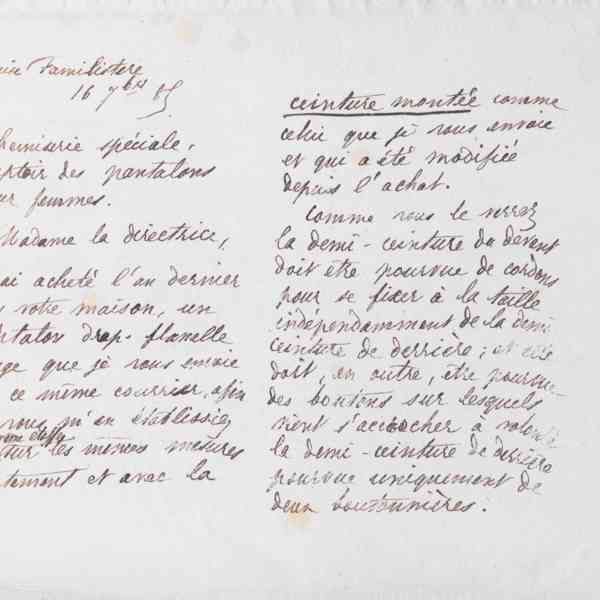 Familistère
16 7bre 85
chemiserie spéciale,
ptoir des pantalons
ur femmes.
Madame la directrice,
ai acheté l'an dernier
votre maison, un
ntalon drap-flanelle
ge que je vous envoie
ce même courrier, afin
vous m'en établissiez
étoffe
sur les mêmes mesures
tement et avec la
ceinture montée comme
celui que je vous envoie
et qui a été modifié
depuis l'achat.
Comme vous le verrez
la demi-ceinture du devant
doit être pourvue de cordons
pour se fixer à la taille
indépendamment de la demi
ceinture de derrière ; et elle
doit, en outre, être pourvue
des boutons sur lesquels
vient s'accrocher à volonté
la demi-ceinture de derrière
pourvue uniquement de
deux boutonnières.